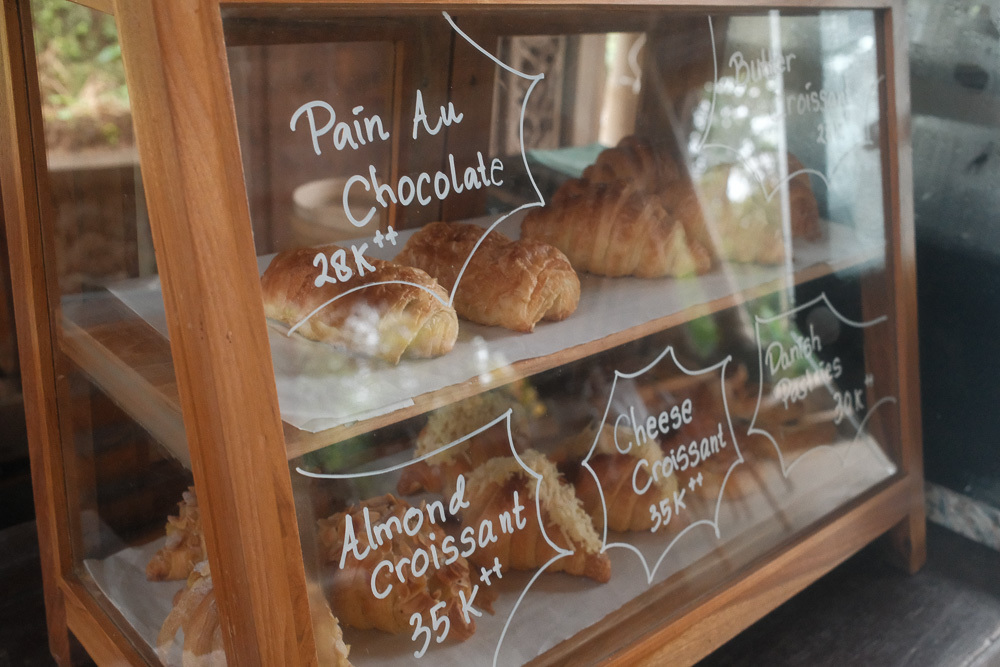 Pain Au
Chocolate
28K++
Butter
Croissant
Almond
Croissant
35K++
Cheese
Croissant
35K++
Danish
Pastries
30K